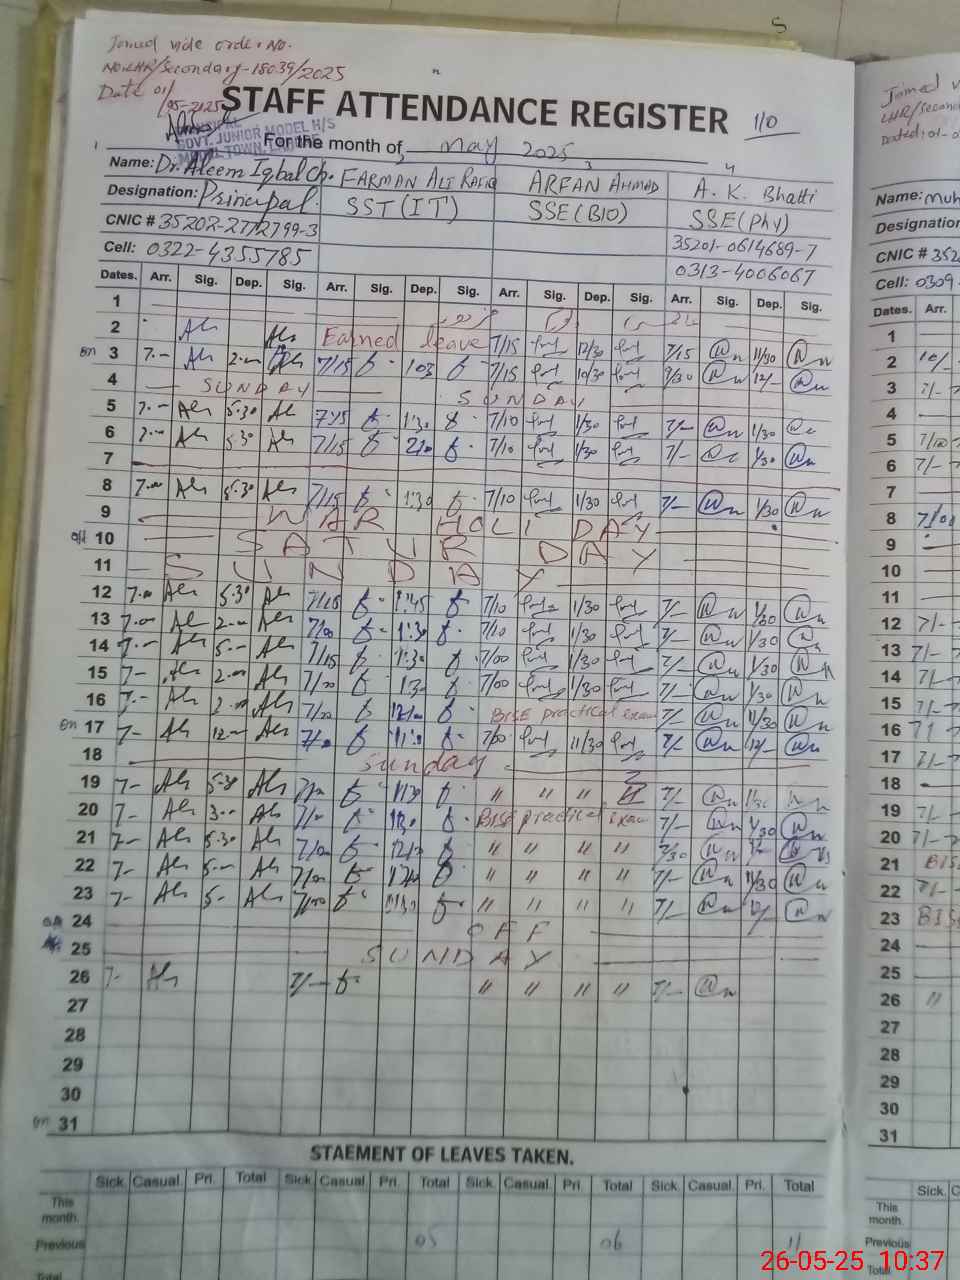 Joined vide order No.
No. LHR/Secondary-18039/2025
Date 01/
05-2025
STAFF ATTENDANCE REGISTER 110
PRINCIPAL
GOVT. JUNIOR MODEL H/S
MODEL TOWN, LAHORE
For the month of May 2025
3 4
Name: Dr. Aleem Iqbal Ch. FARMAN ALI RAFIQ ARFAN AHMAD A. K. Bhatti
Designation: Principal. SST (IT) SSE (BIO) SSE (Phy)
CNIC # 35202-2772799-3 35201-0614689-7
Cell: 0322-4355785 0313-4006067
Dates. Arr. Sig. Dep. Sig. Arr. Sig. Dep. Sig. Arr. Sig. Dep. Sig. Arr. Sig. Dep. Sig.
1
2 Earned leave 7/15 12/30 7/15 11/30
3 7.00 2.00 7/15 1:03 7/15 10/30 9/30 12/-
4 SUNDAY SUNDAY
5 7.00 5.30 7:15 1:30 7/10 1/30 7/- 1/30
6 7.00 5.30 7/15 2:00 7/10 1/30 7/- 1/30
7
8 7.00 5.30 7/15 1:30 7/10 1/30 7/- 1/30
9 WAR HOLI DAY
off 10 SATURDAY
11 SUNDAY
12 7.00 5.30 7/15 1:45 7/10 1/30 7/- 1/30
13 7.00 2.00 7/00 1:30 7/10 1/30 7/- 1/30
14 7.00 5.00 7/15 1:30 7/00 1/30 7/- 1/30
15 7- 2.00 7/00 1:30 7/00 1/30 7/- 1/30
16 7.- 2.00 7/00 12/00 BISE practical exam 7/- 11/30
on 17 7- 12.00 7/00 11:30 7/00 11/30 7/- 12/-
18 Sunday
19 7- 5.30 7/00 1:30 " " " 7/-
20 7- 3.00 7/00 1:30 BISE practical exam 7/- 1/30
21 7- 5.30 7/00 " " " " 7/30
22 7- 5.00 7/00 " " " " 7/- 11/30
23 7- 5- 7/00 1:30 " " " " 7/- 12/-
24 OFF
25 SUNDAY
26 7- 7/- " " " " 7/-
27
28
29
30
31
STAEMENT OF LEAVES TAKEN.
Sick. Casual. Pri. Total Sick. Casual. Pri. Total Sick. Casual. Pri. Total Sick. Casual. Pri. Total
This month.
Previous 05 06 11
Total
Joined
LHR/Secon
Dated: 01-0
Name: Muh
Designation
CNIC # 352
Cell: 0309-
Dates. Arr.
1
2 10/-
3 7/-
4
5 7/00
6 7/-
7
8 7/00
9
10
11
12 7/-
13 7/-
14 7/-
15 7/-
16
17 7/-
18
19 7/-
20 7/-
21 BIS
22 7/-
23 BIS
24
25
26 "
27
28
29
30
31
Sick.
This month.
Previous
Total
26-05-25 10:37